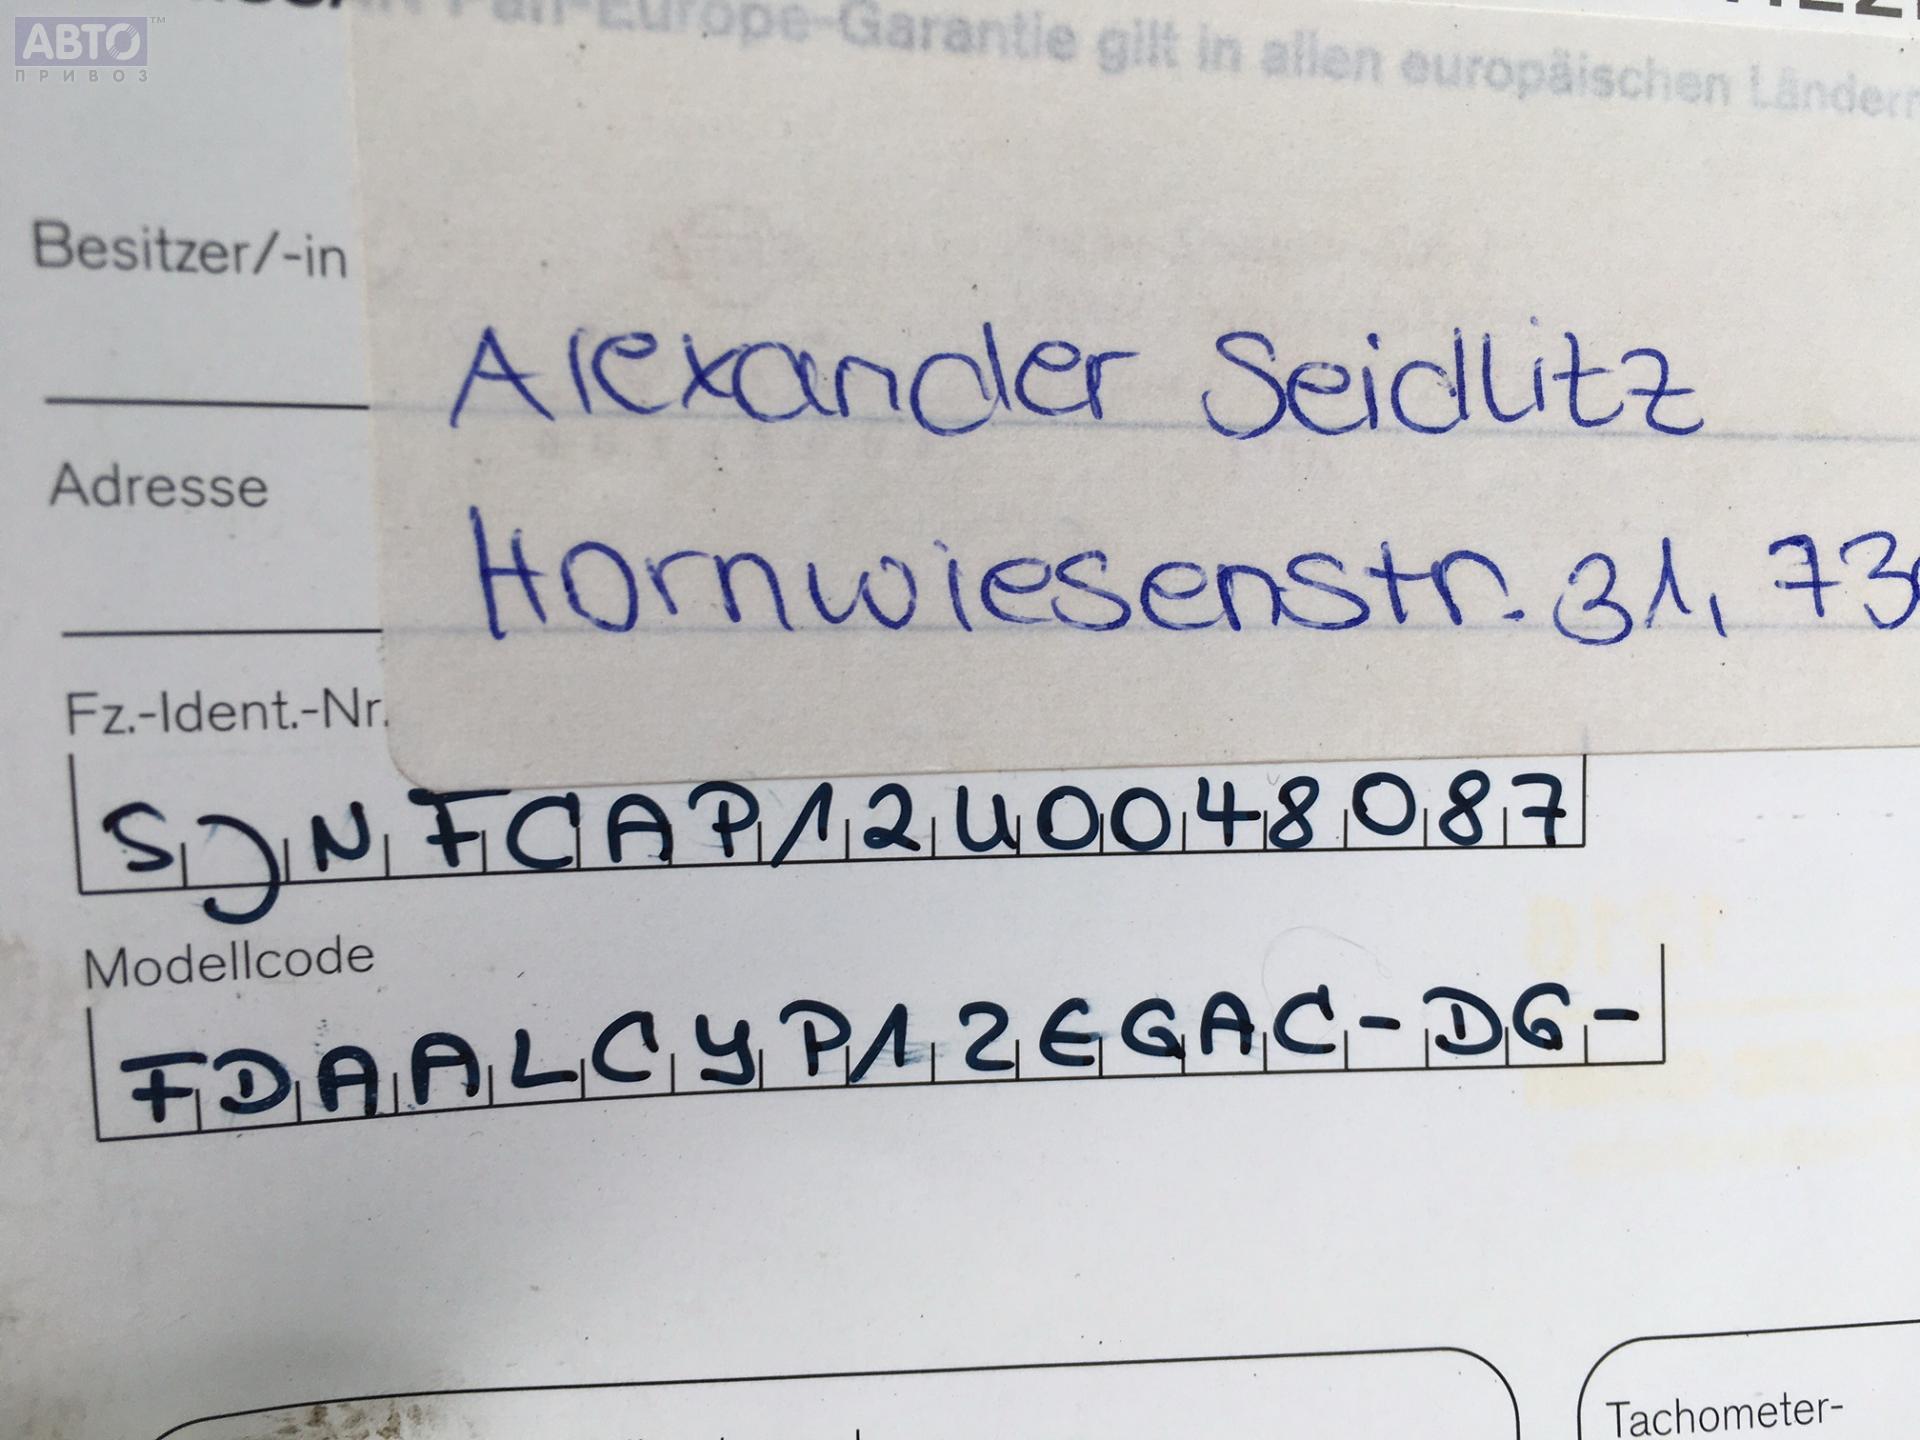 АВТО™
ПРИВОЗ
Pan-Europe-Garantie gilt in allen europäischen Ländern
Besitzer/-in
Alexander Seidlitz
Adresse
Hornwiesenstr. 31, 73
Fz.-Ident.-Nr.
SJNFCAP12U0048087
Modellcode
FDAALCYP12EGAC-DG-
Tachometer-